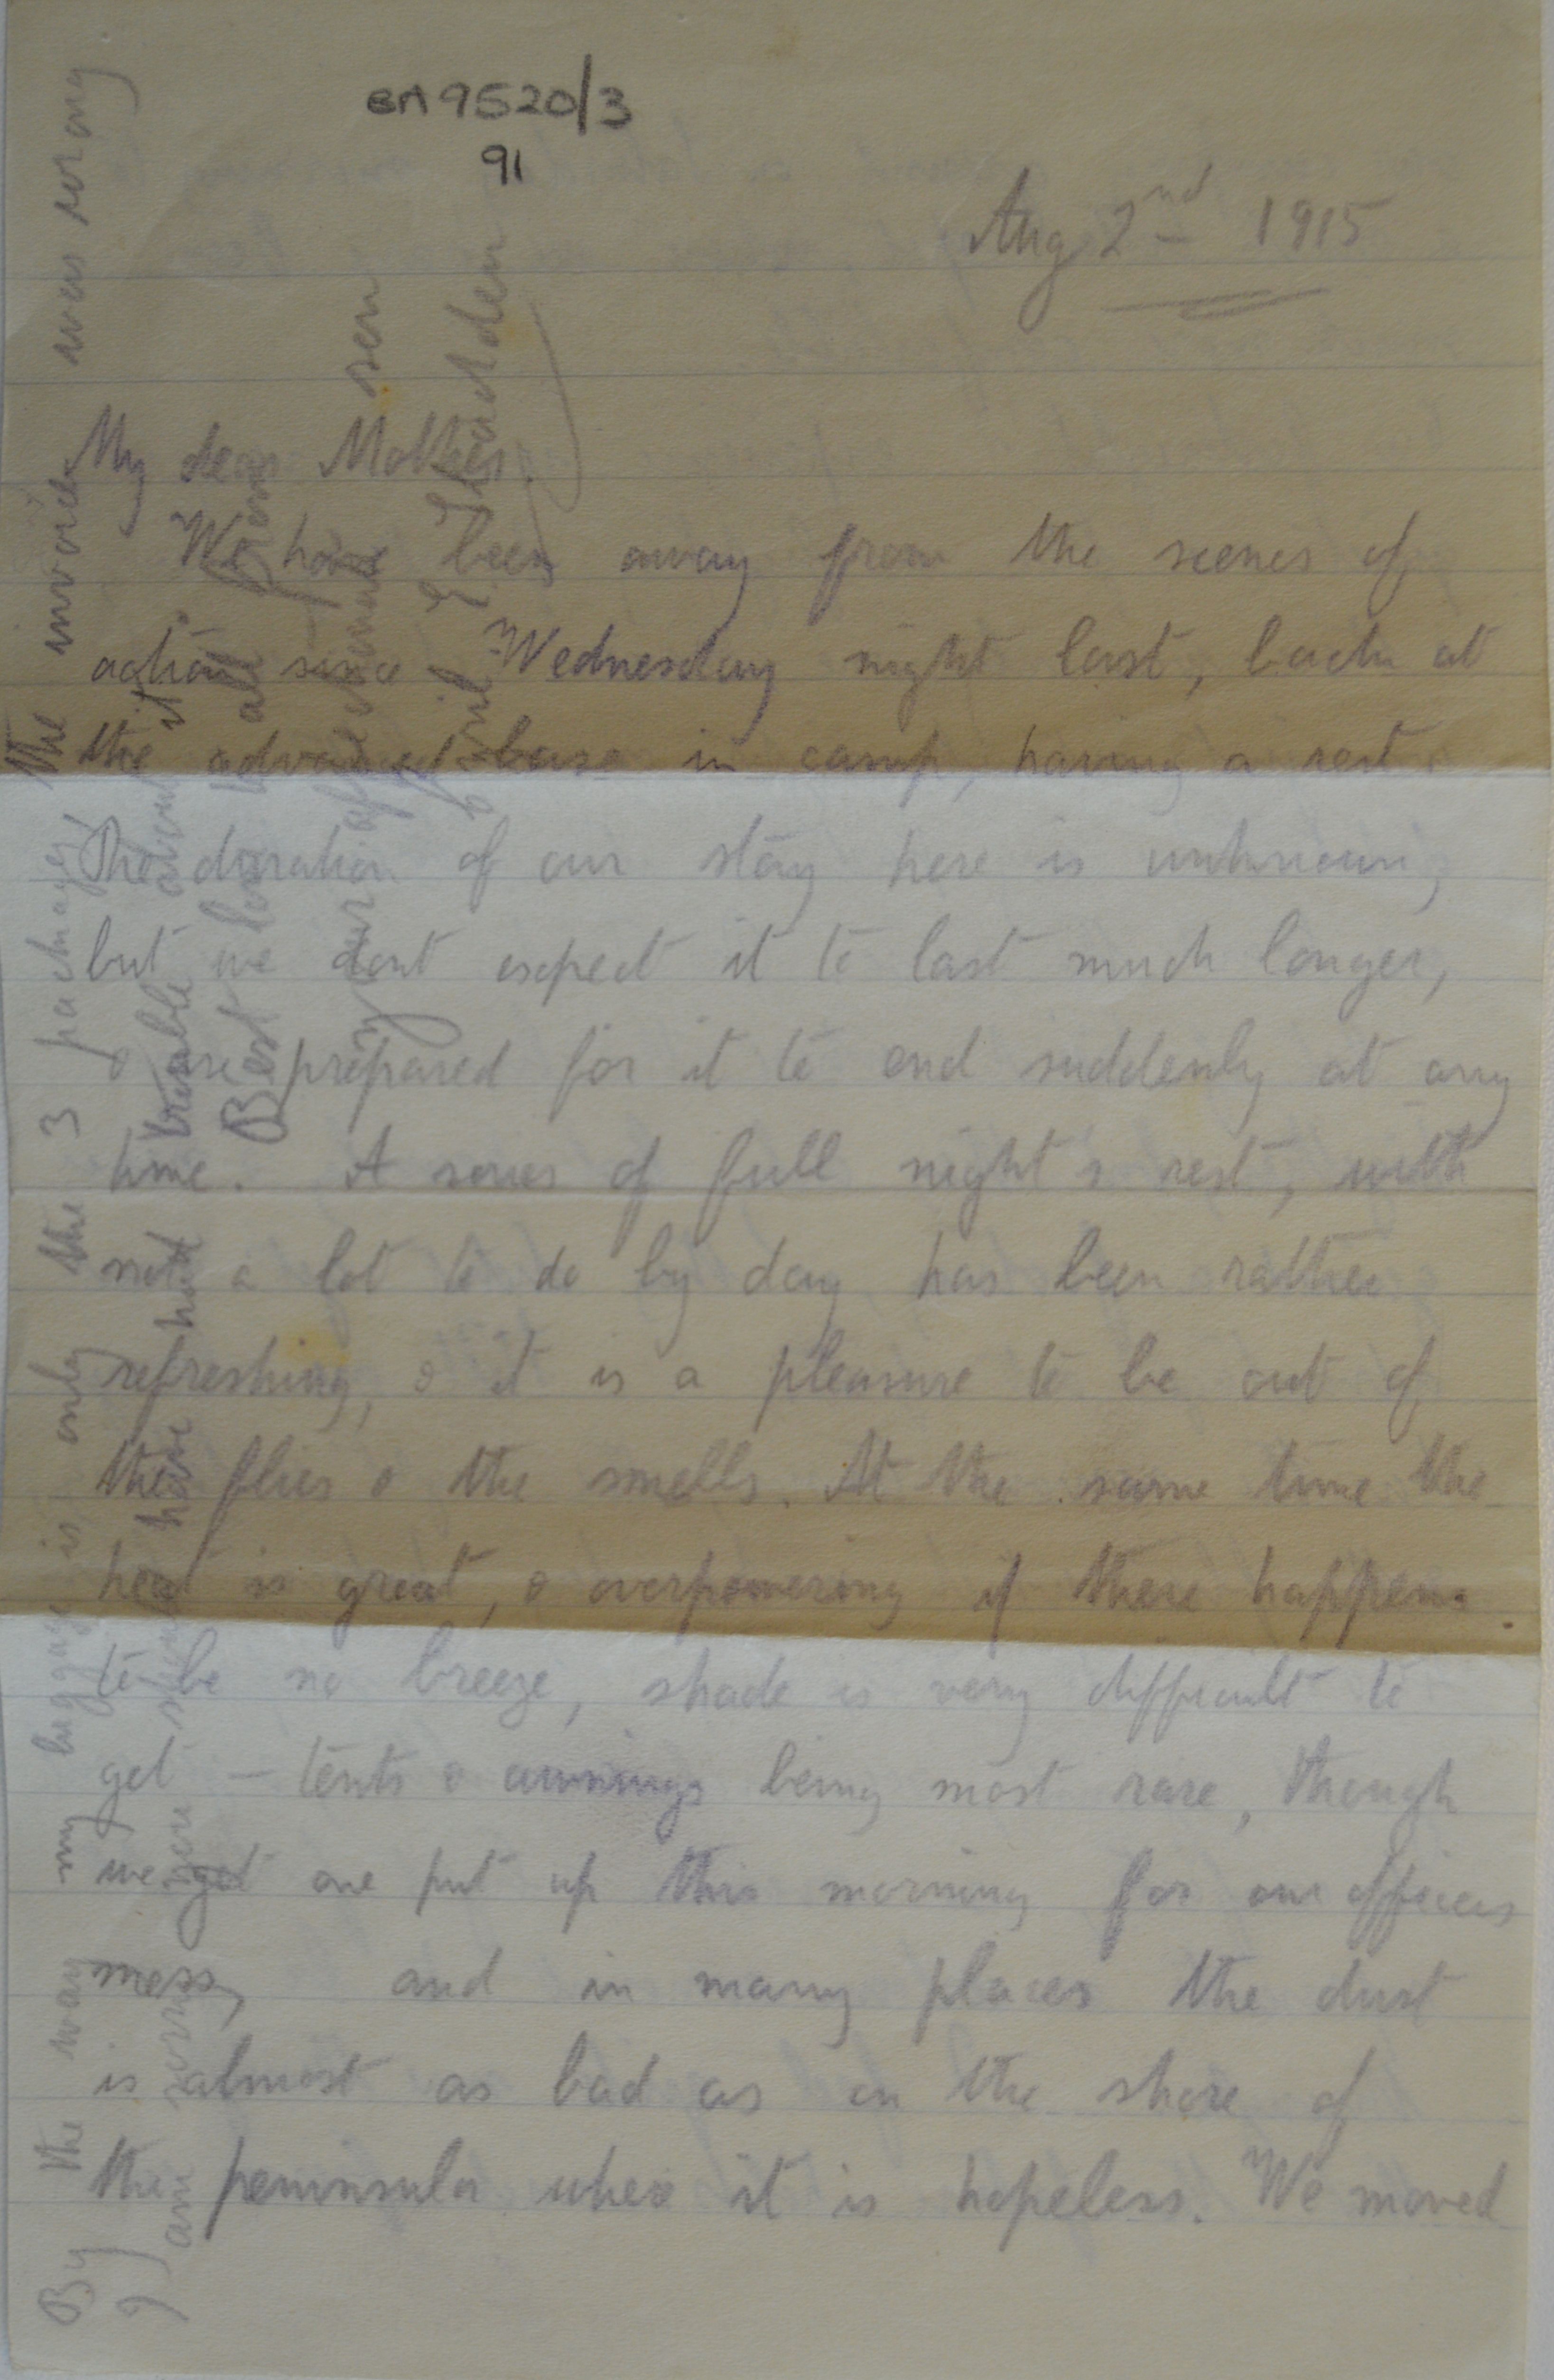 9520/3
91
Aug 2nd 1915
My dear Mother
We have been away from the scenes of
action since Wednesday night last, back at
the advanced base in camp, having a rest.
The duration of our stay here is unknown,
but we dont expect it to last much longer,
& are prepared for it to end suddenly at any
time. A series of full night's rest, with
not a lot to do by day has been rather
refreshing, & it is a pleasure to be out of
the flies & the smells. At the same time the
heat is great, & overpowering if there happens
to be no breeze, shade is very difficult to
get — tents & awnings being most rare, though
we got one put up this morning for our officers
mess, and in many places the dust
is almost as bad as on the shore of
the peninsula where it is hopeless. We moved
By the way my luggage is only the 3 packages the invoice was wrong
I am sorry you should have had trouble about it.
Best love to all from
your affectionate son
Thadden